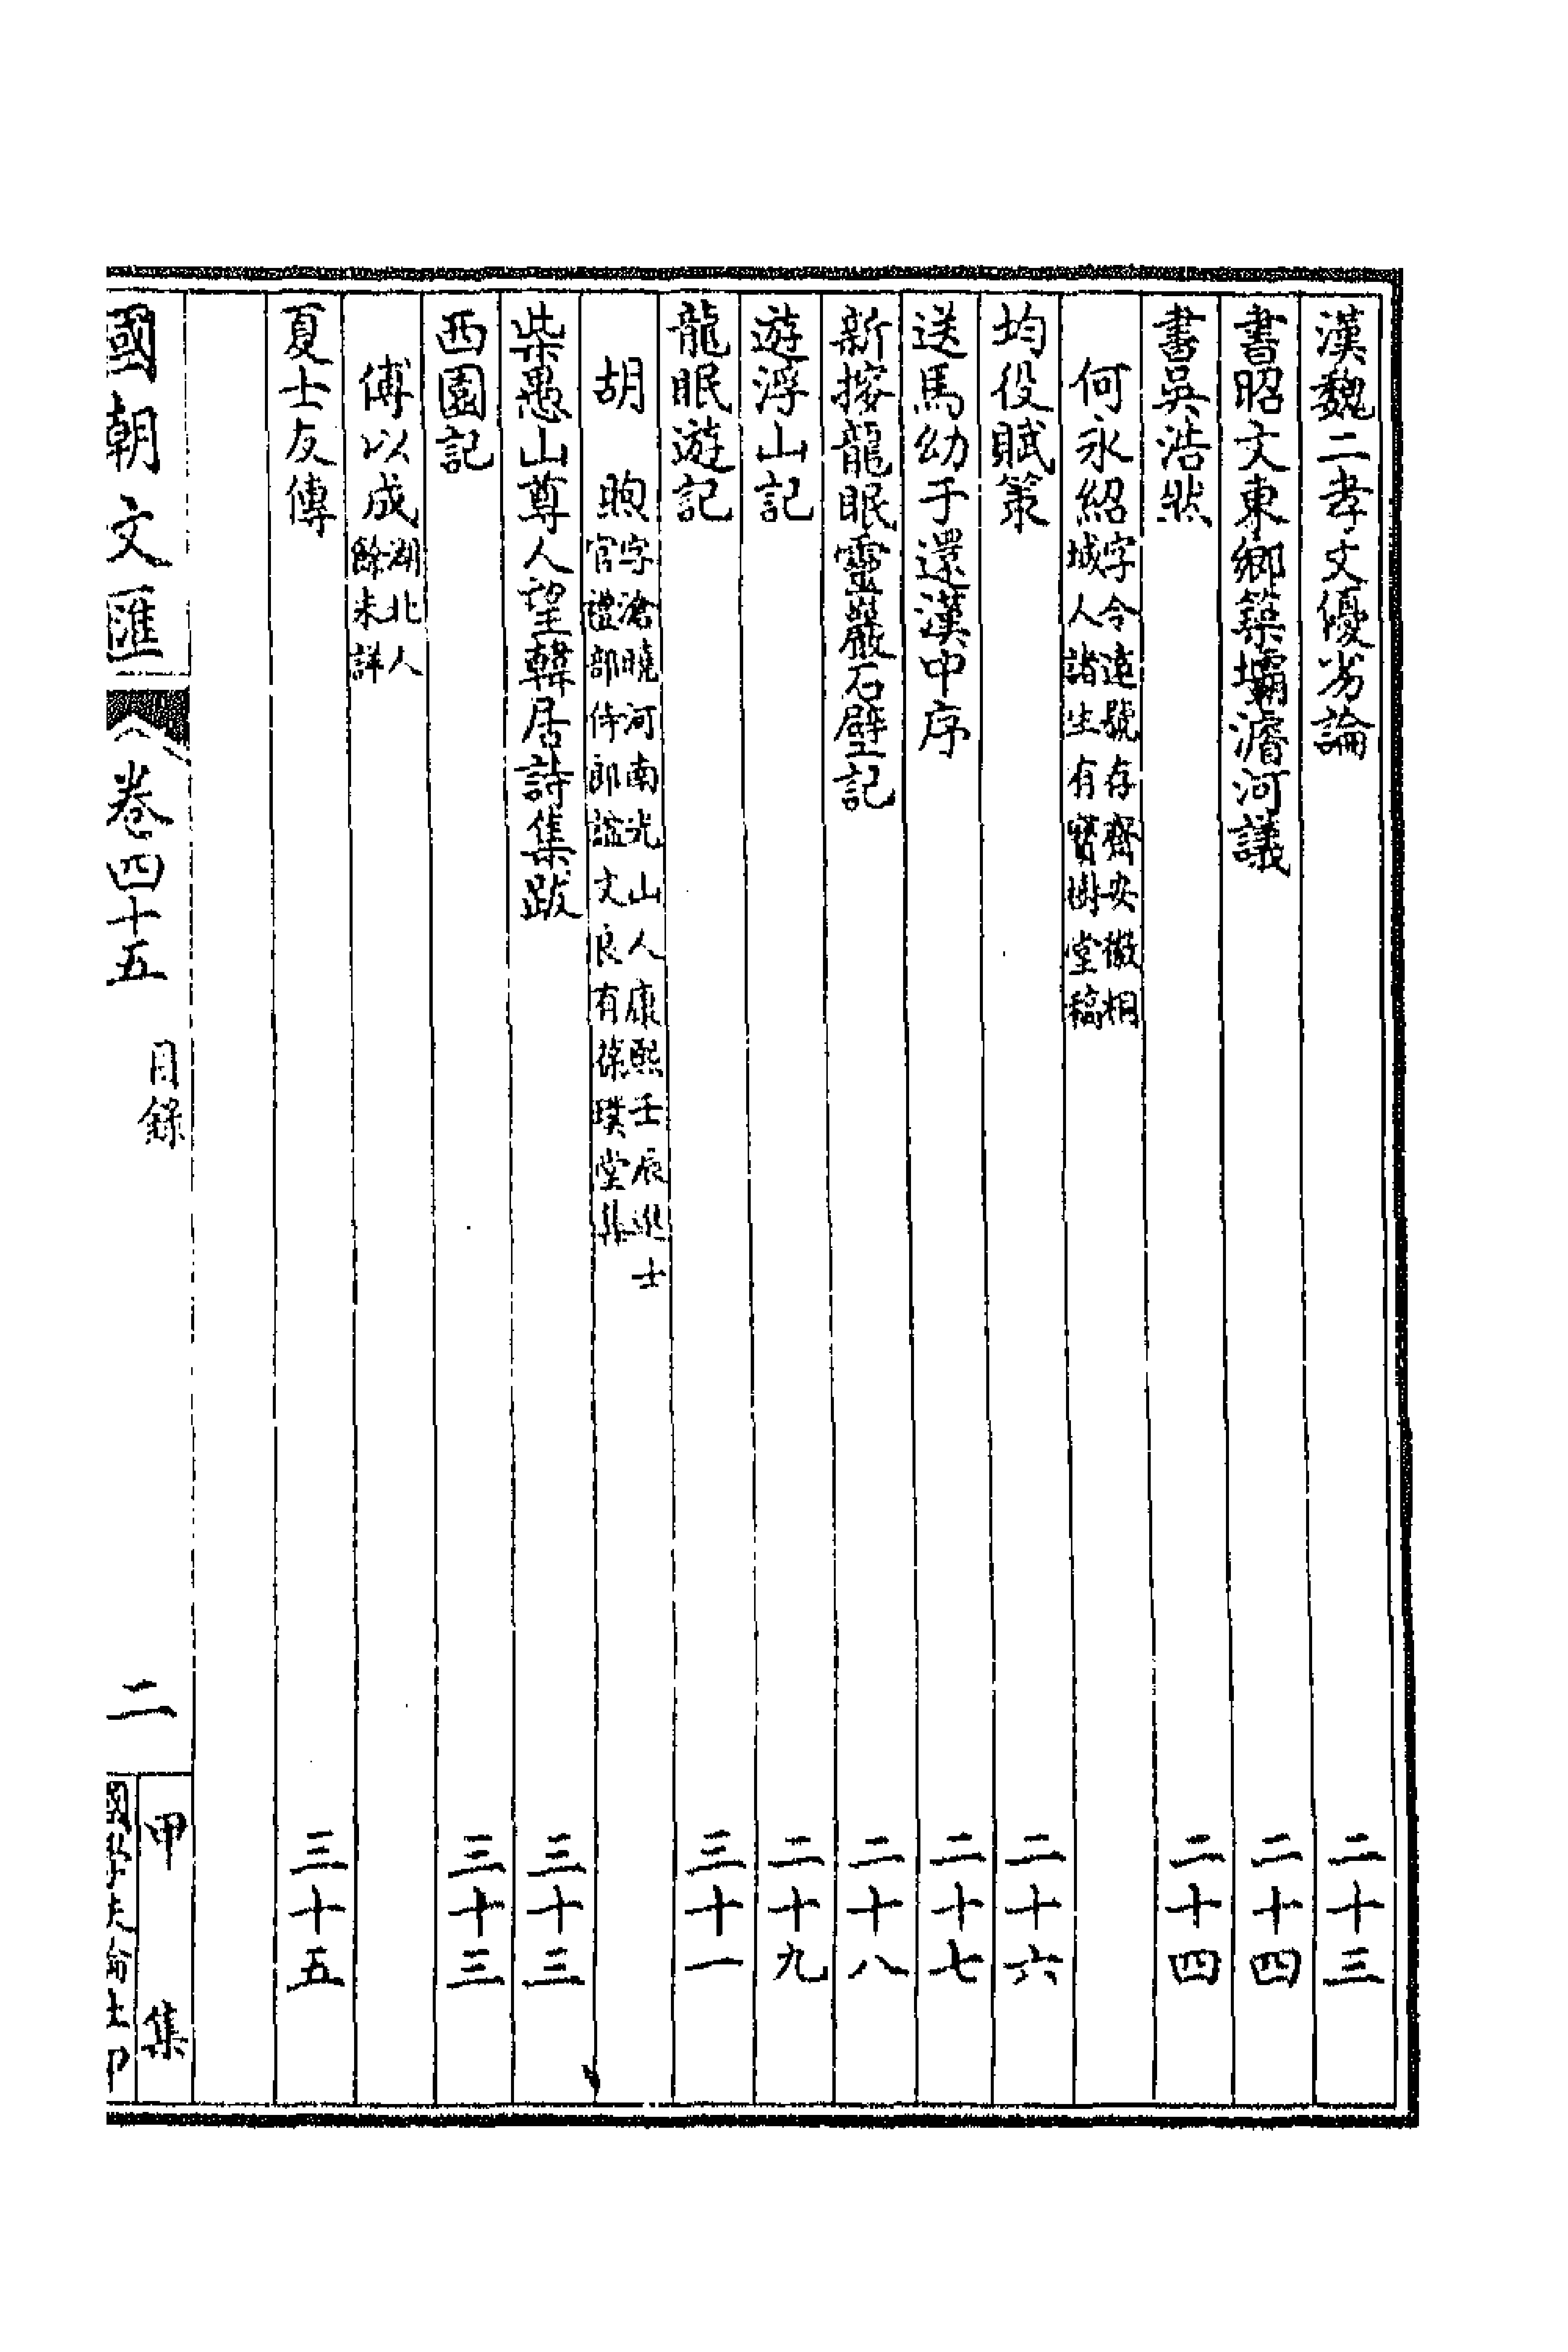 漢魏二孝文優劣論 二十三
書昭文東鄉築壩濬河議 二十四
書吳浩狀 二十四
何永紹 字令遠號存齋安徽桐
城人諸生有寶樹堂稿
均役賦策 二十六
送馬幼子還漢中序 二十七
新搜龍眠靈巖石壁記 二十八
遊浮山記 二十九
龍眠遊記 三十一
胡煦 字滄曉河南光山人康熙壬辰進士
官禮部侍郎諡文良有葆璞堂集
柴愚山尊人望韓居詩集跋 三十三
西園記 三十三
傅以成 湖北人
餘未詳
夏士友傳 三十五
國朝文匯 卷四十五 目錄 二 甲集
國學扶輪社印